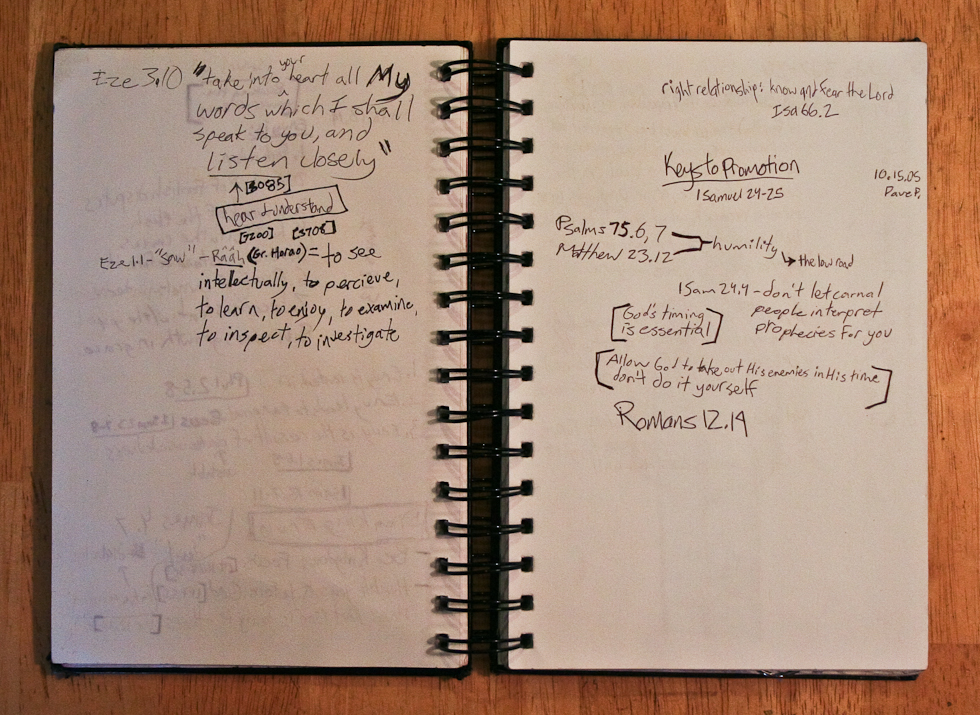 Eze 3.10 "take into your heart all My
words which I shall
speak to you, and
listen closely"
[8085]
hear & understand
[7200] [3708]
Eze 1.1 - "saw" - Rââh (Gr. Horao) = to see
intellectually, to percieve,
to learn, to enjoy, to examine,
to inspect, to investigate
right relationship: know and fear the Lord
Isa 66.2
Keys to Promotion
1 Samuel 24-25
10.15.05
Dave P.
Psalms 75.6,7
Matthew 23.12
humility
the low road
1 Sam 24.4 - don't let carnal
people interpret
prophecies for you
[God's timing
is essential]
[Allow God to take out His enemies in His time
don't do it yourself]
Romans 12.19